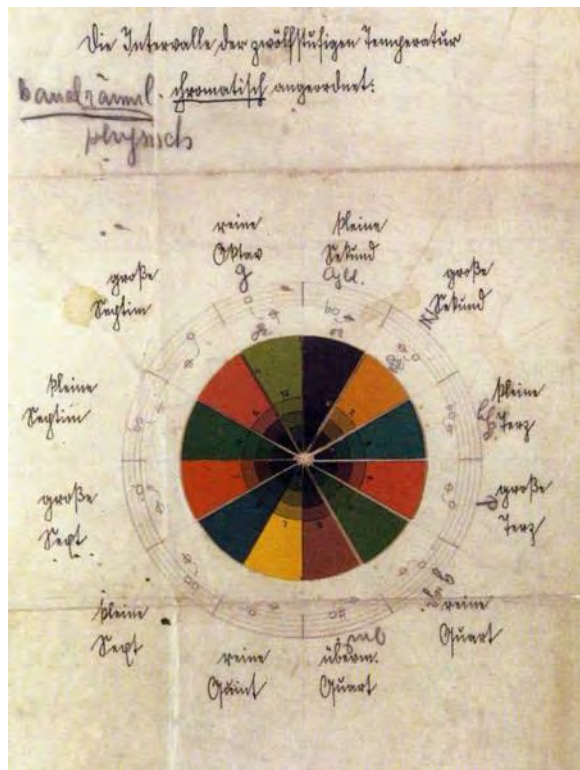 Die Intervalle der zwölfstufigen Temperatur
chromatisch angeordnet:
physisch
reine
Oktav
kleine
Sekund
große
Sekund
kleine
Terz
große
Terz
reine
Quart
überm.
Quart
reine
Quint
kleine
Sext
große
Sext
kleine
Septim
große
Septim
12
7